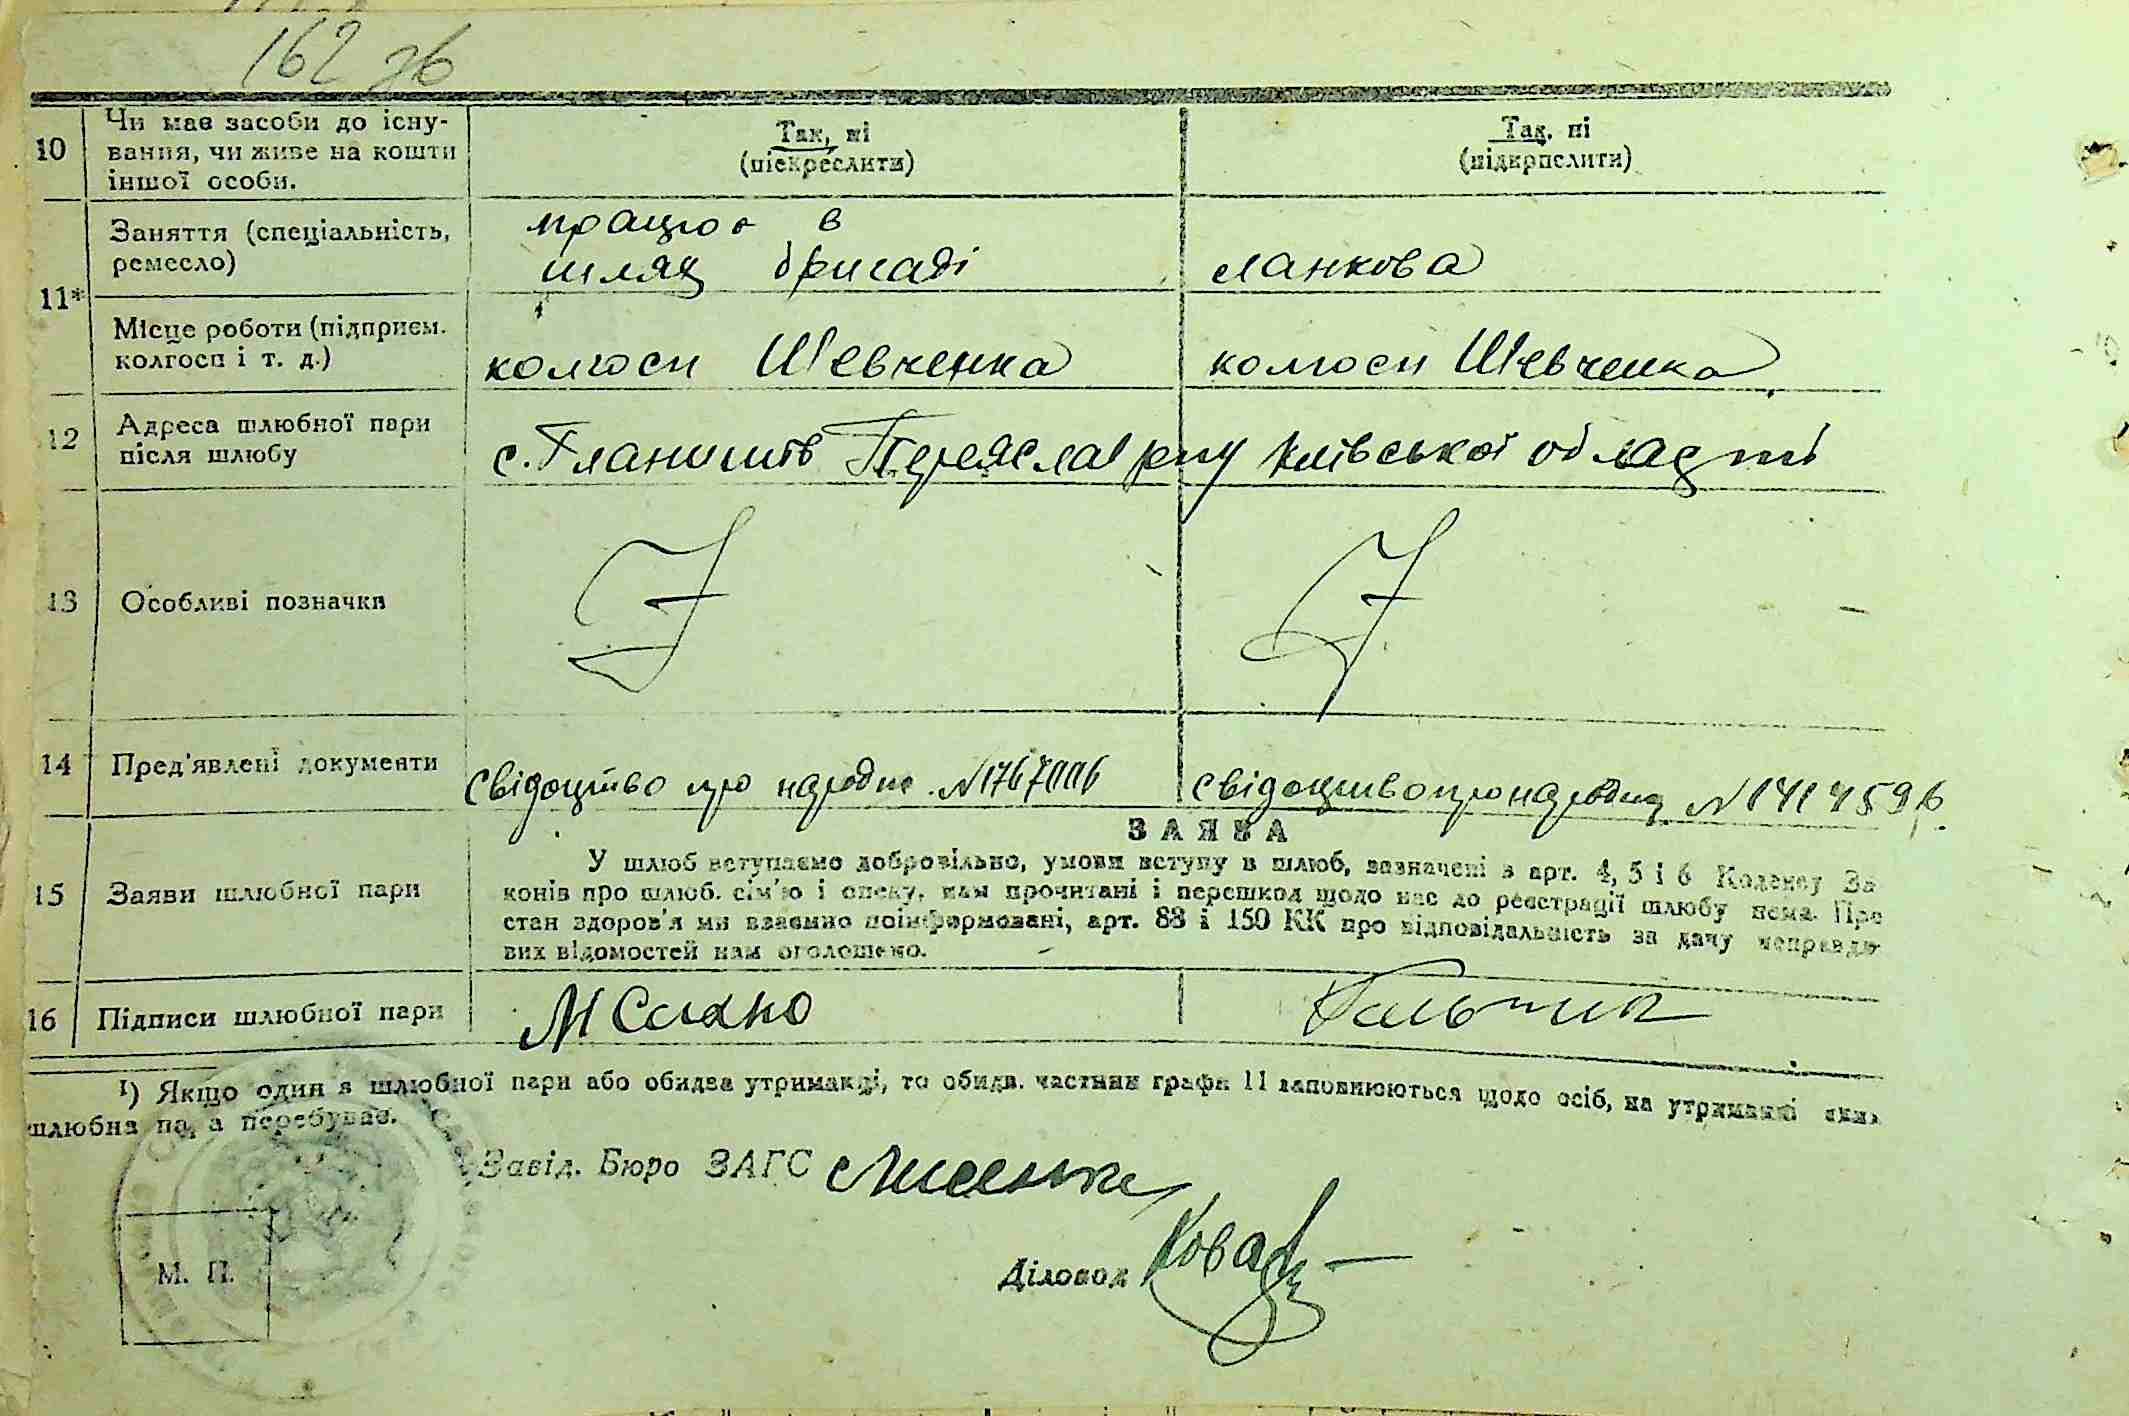 162 зв
10
Чи має засоби до існу-
вання, чи живе на кошти
іншої особи.
Так, ні
(підкреслити)
Так, ні
(підкреслити)
11*
Заняття (спеціальність,
ремесло)
працює в
шлях бригаді
ланкова
Місце роботи (підприєм.
колгосп і т. д.)
колгосп Шевченка
колгосп Шевченка
12
Адреса шлюбної пари
після шлюбу
с. Гланишів Переяслав р-ну Київської області
13
Особливі позначки
14
Пред'явлені документи
Свідоцтво про народж. N
Свідоцтво про народж N
15
Заяви шлюбної пари
ЗАЯВА
У шлюб вступаємо добровільно, умови вступу в шлюб, зазначені в арт. 4, 5 і 6 Кодексу За
конів про шлюб. сім'ю і опеку, нам прочитані і перешкод щодо нас до реєстрації шлюбу нема. Про
стан здоров'я ми взаємно поінформовані, арт. 88 і 150 КК про відповідальність за дачу неправди-
вих відомостей нам оголошено.
16
Підписи шлюбної пари
1) Якщо один з шлюбної пари або обидва утриманці, то обидв. частини графи 11 заповнюються щодо осіб, на утриманні яких
шлюбна па, а перебуває.
Завід. Бюро ЗАГС Лисенко
Діловод
М. П.